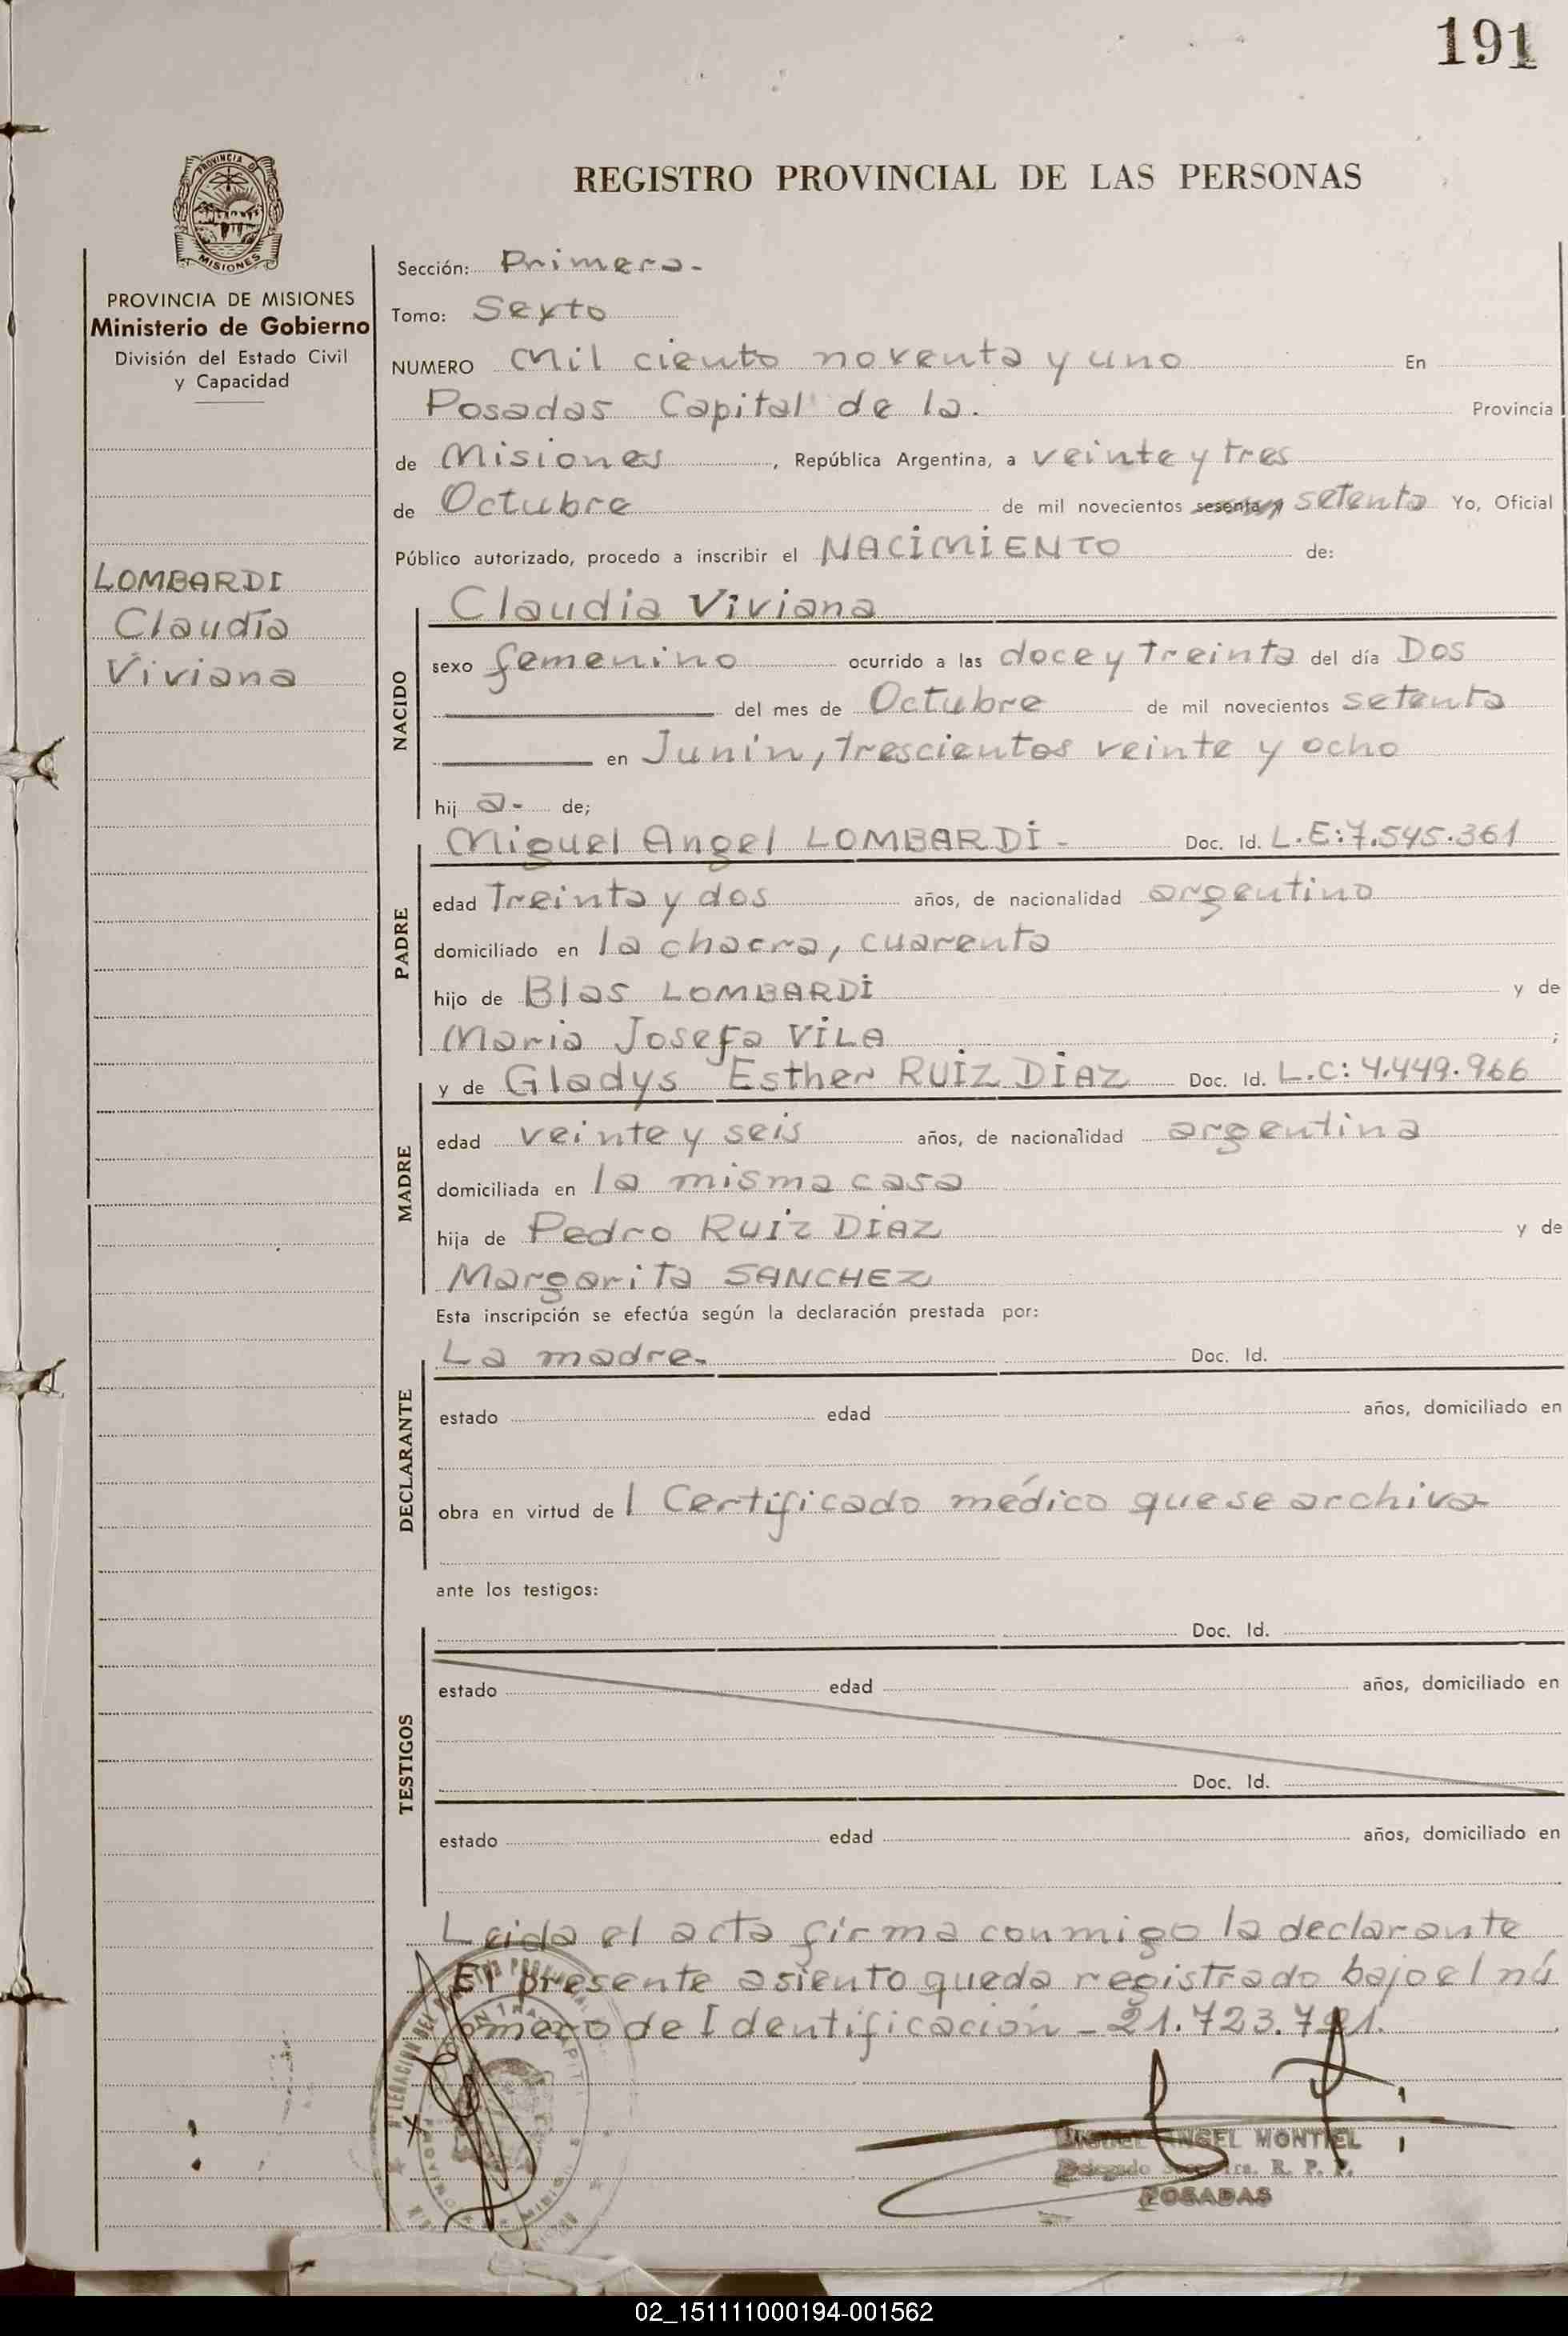 191
PROVINCIA DE
MISIONES
REGISTRO PROVINCIAL DE LAS PERSONAS
PROVINCIA DE MISIONES
Ministerio de Gobierno
División del Estado Civil
y Capacidad
LOMBARDI
Claudia
Viviana
Sección: Primera.-
Tomo: Sexto
NUMERO Mil ciento noventa y uno En
Posadas Capital de la. Provincia
de Misiones, República Argentina, a veinte y tres
de Octubre de mil novecientos sesenta y setenta Yo, Oficial
Público autorizado, procedo a inscribir el NACIMIENTO de:
NACIDO
Claudia Viviana
sexo femenino ocurrido a las doce y treinta del día Dos
del mes de Octubre de mil novecientos setenta
en Junin, trescientos veinte y ocho
hij a- de;
PADRE
Miguel Angel LOMBARDI - Doc. Id. L.E:7.545.361
edad treinta y dos años, de nacionalidad argentino
domiciliado en la chacra, cuarenta
hijo de Blas LOMBARDI y de
Maria Josefa VILA ;
MADRE
y de Gladys Esther RUIZ DIAZ Doc. Id. L.C: 4.449.966
edad veinte y seis años, de nacionalidad argentina
domiciliada en la misma casa
hija de Pedro RUIZ DIAZ y de
Margarita SANCHEZ
Esta inscripción se efectúa según la declaración prestada por:
DECLARANTE
La madre.- Doc. Id.
estado edad años, domiciliado en
obra en virtud de l Certificado médico que se archiva
ante los testigos:
TESTIGOS
Doc. Id.
estado edad años, domiciliado en
Doc. Id.
estado edad años, domiciliado en
Leida el acta firma conmigo la declarante
El presente asiento queda registrado bajo el nú
mero de Identificación - 21.723.791.
MIGUEL ANGEL MONTIEL
R. P. P.
POSADAS
02_151111000194-001562